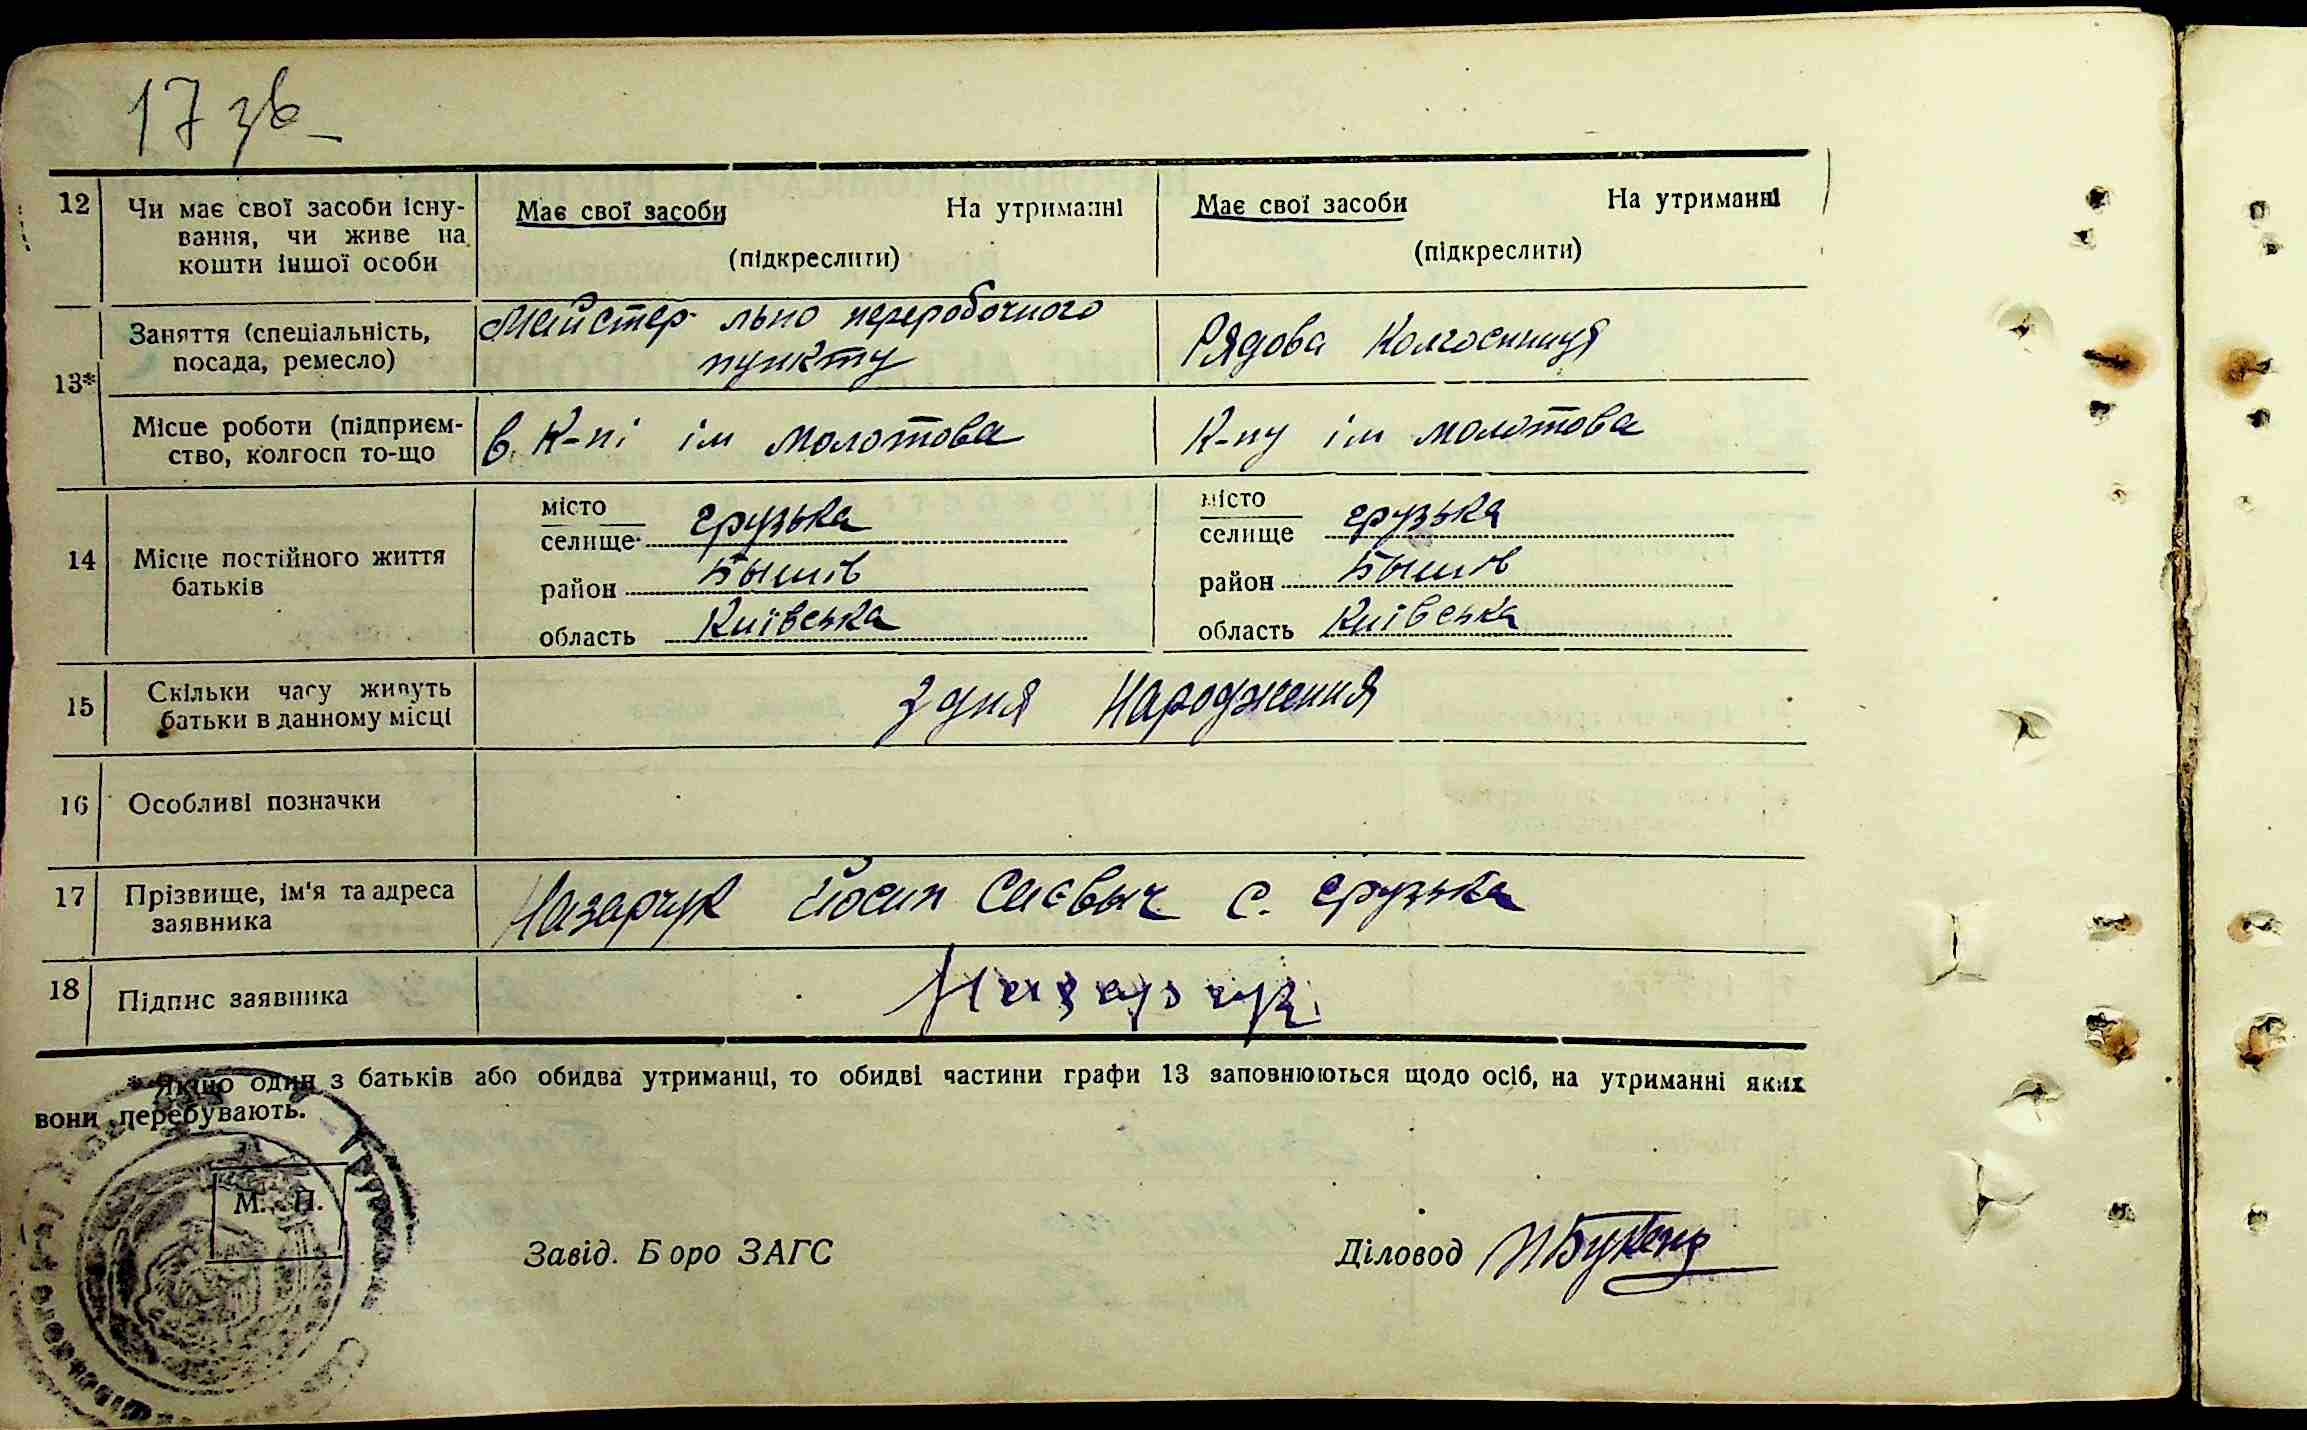 17 зв
12 Чи має свої засоби існу- Має свої засоби На утриманні Має свої засоби На утриманні
вання, чи живе на
кошти іншої особи (підкреслити) (підкреслити)
13* Заняття (спеціальність, Майстер льно переробочного Рядова Колгоспниця
посада, ремесло) пункту
Місце роботи (підприєм- в К-пі ім молотова К-пу ім молотова
ство, колгосп то-що
14 Місце постійного життя батьків
місто
селище грузька
район Бышів
область Київська
місто
селище грузька
район Бышів
область Київська
15 Скільки часу живуть З дня Народження
батьки в данному місці
16 Особливі позначки
17 Прізвище, ім'я та адреса Назарчук Йосип с. грузька
заявника
18 Підпис заявника Назарчук
* Якщо один з батьків або обидва утриманці, то обидві частини графи 13 заповнюються щодо осіб, на утриманні яких
вони перебувають.
М. П.
Завід. Бюро ЗАГС Діловод